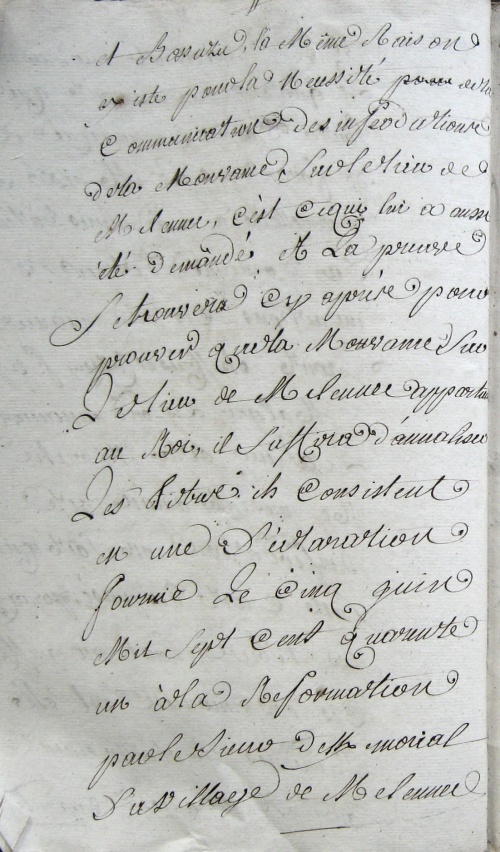 et Bassuzi, la Même Raison
existe pour la Néssité de la
Communication des infeodations
de la Mouvance Sur le lieu de
Melennec, c'est ce qui lui a aussi
été demandé, Et La preuve
Se trouvera cy après pour
prouver que la Mouvance Sur
Le lieu de Melennec appartien
au Roi, il Suffira d'annaliser
Les titre ils Consistent
en une Déclaration
fournie Le cinq juin
Mil Sept Cent Quarente
un à la Reformation
par le Sieur de
Du village de Melennec